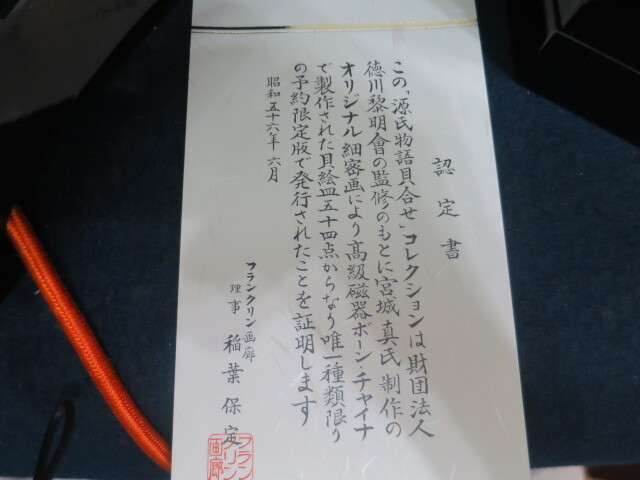 認定書
この、「源氏物語貝合せ」コレクションは財団法人
徳川黎明會の監修のもとに宮城真氏制作の
オリジナル細密画により高級磁器ボーン・チャイナ
で製作された貝絵皿五十四点からなり唯一種類限り
の予約限定版で発行されたことを証明します
昭和五十六年六月
フランクリン画廊
理事 稲葉保定
フラン
クリン
画廊